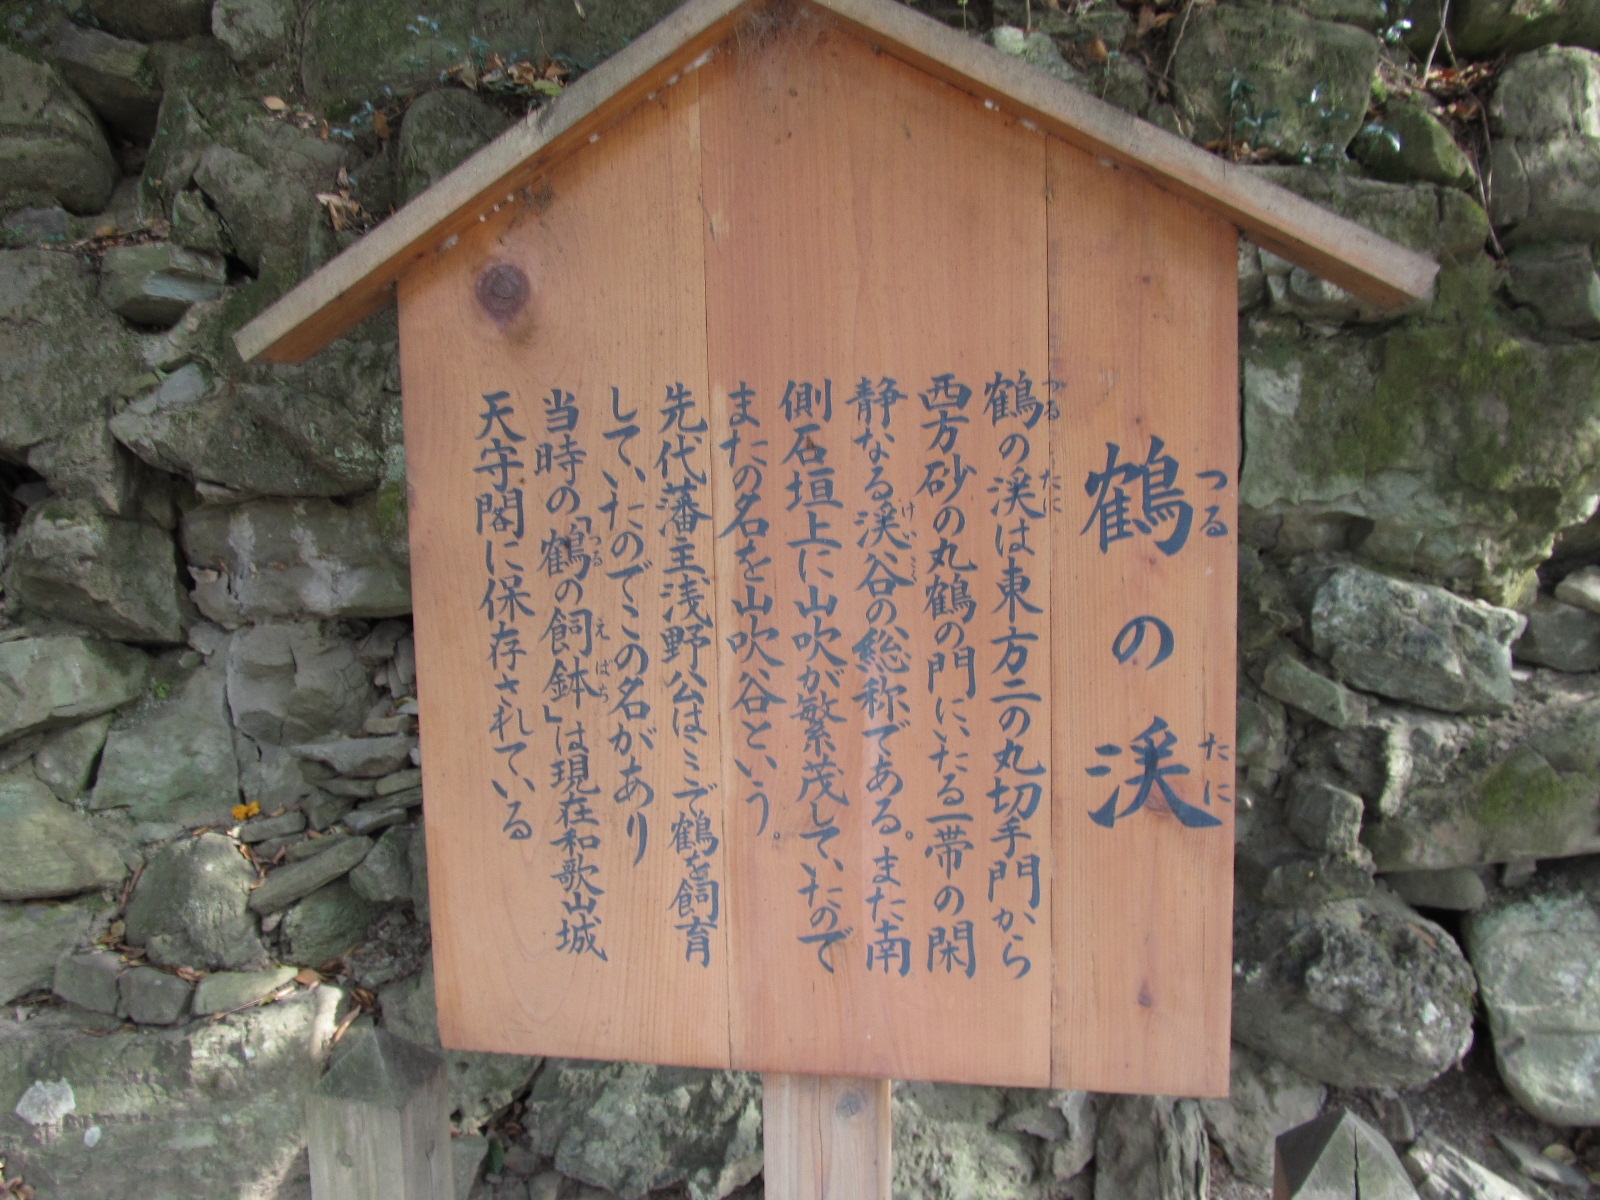 鶴の渓
つる
たに
鶴の渓は東方二の丸切手門から
つる
たに
西方砂の丸鶴の門にいたる一帯の閑
静なる渓谷の総称である。また南
側石垣上に山吹が繁茂していたので
またの名を山吹谷という。
先代藩主浅野公はここで鶴を飼育
していたのでこの名があり
当時の「鶴の飼鉢」は現在和歌山城
つる
えばち
天守閣に保存されている